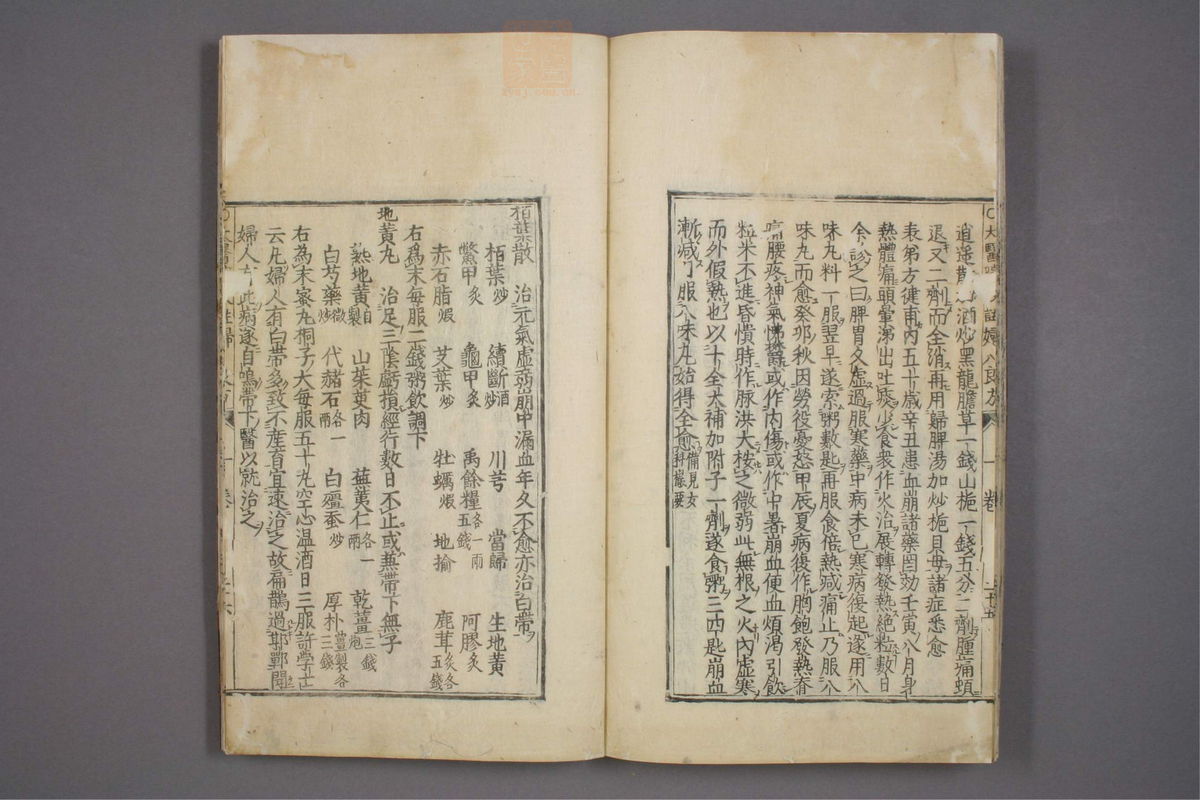 逍遥散酒炒黑龍膽草一錢山梔一錢五分二劑腫痛頓
退又二劑而全消再用歸脾湯加炒梔貝母諸症悉愈
表弟方健甫內五十歲辛丑患血崩諸藥罔効壬寅八月身
熱體痛頭暈涕出吐痰少食衆作火治展轉發熱絕粒數日
余診之曰脾胃久虛過服寒藥中病未已寒病復起遂用八
味丸料一服翌早遂索粥數匙再服食倍熱减痛止乃服八
味丸而愈癸卯秋因勞役憂怒甲辰夏病復作胸飽發熱脊
腰疼神氣怫鬱或作內傷或作中暑崩血便血煩渴引飲
粒米不進昏憒時作脉洪大按之微弱此無根之火內虛寒
而外假熱也以十全大補加附子一劑遂食粥三四匙崩血
漸减日服八味丸始得全愈備見女科撮要
大醫 註婦人良方 一卷 二十五
栢葉散 治元氣虛弱崩中漏血年久不愈亦治白帶
栢葉炒 續斷酒炒 川芎 當歸 生地黃
鱉甲炙 龜甲炙 禹餘糧各一兩五錢 阿膠炙
赤石脂煅 艾葉炒 牡蠣煅 地揄 鹿茸炙各五錢
右爲末每服二錢粥飲調下
地黃丸 治足三陰虧損經行數日不止或兼帶下無子
熟地黃自製 山茱萸肉 蕪荑仁各一兩 乾薑炮三錢
白芍藥微炒 代赭石各一兩 白殭蚕炒 厚朴薑製各三錢
右為末蜜丸桐子大每服五十丸空心温酒日三服許學士
云凡婦人有白帶多致不産育宜速治之故扁鵲過邯鄲聞
婦人有此病遂自鳴帶下醫以就治之
一卷 二十六